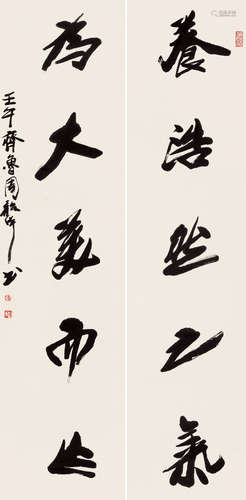 養浩然之氣
為大美而止
壬午齊魯周書